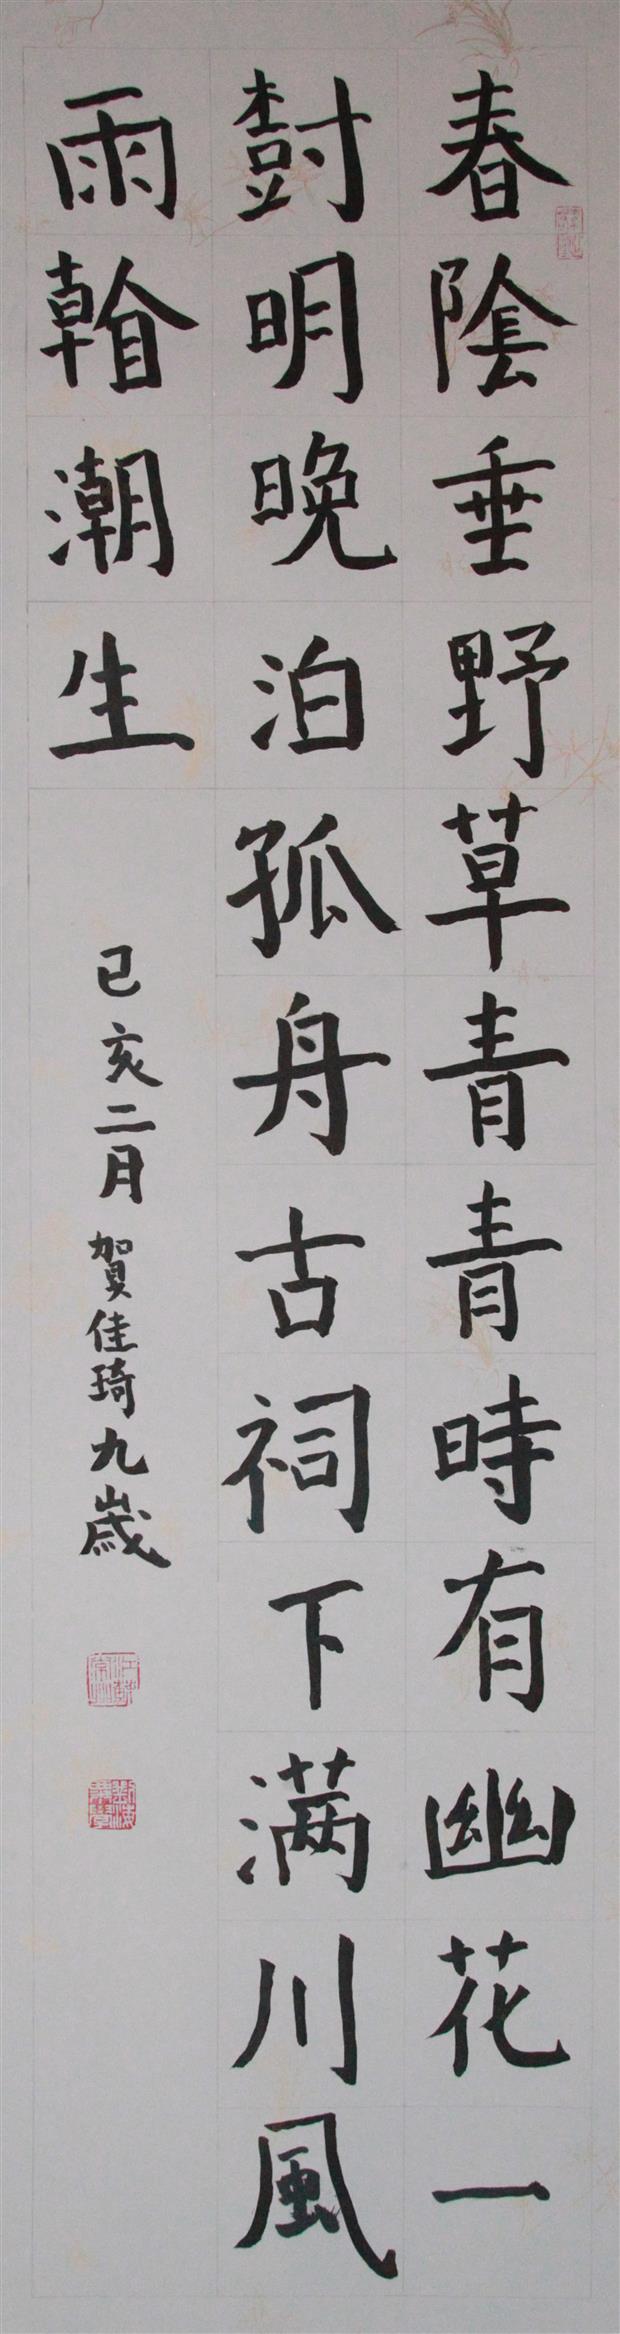 春陰垂野草青青時有幽花一
樹明晚泊孤舟古祠下滿川風
雨看潮生
己亥二月賀佳琦九歲